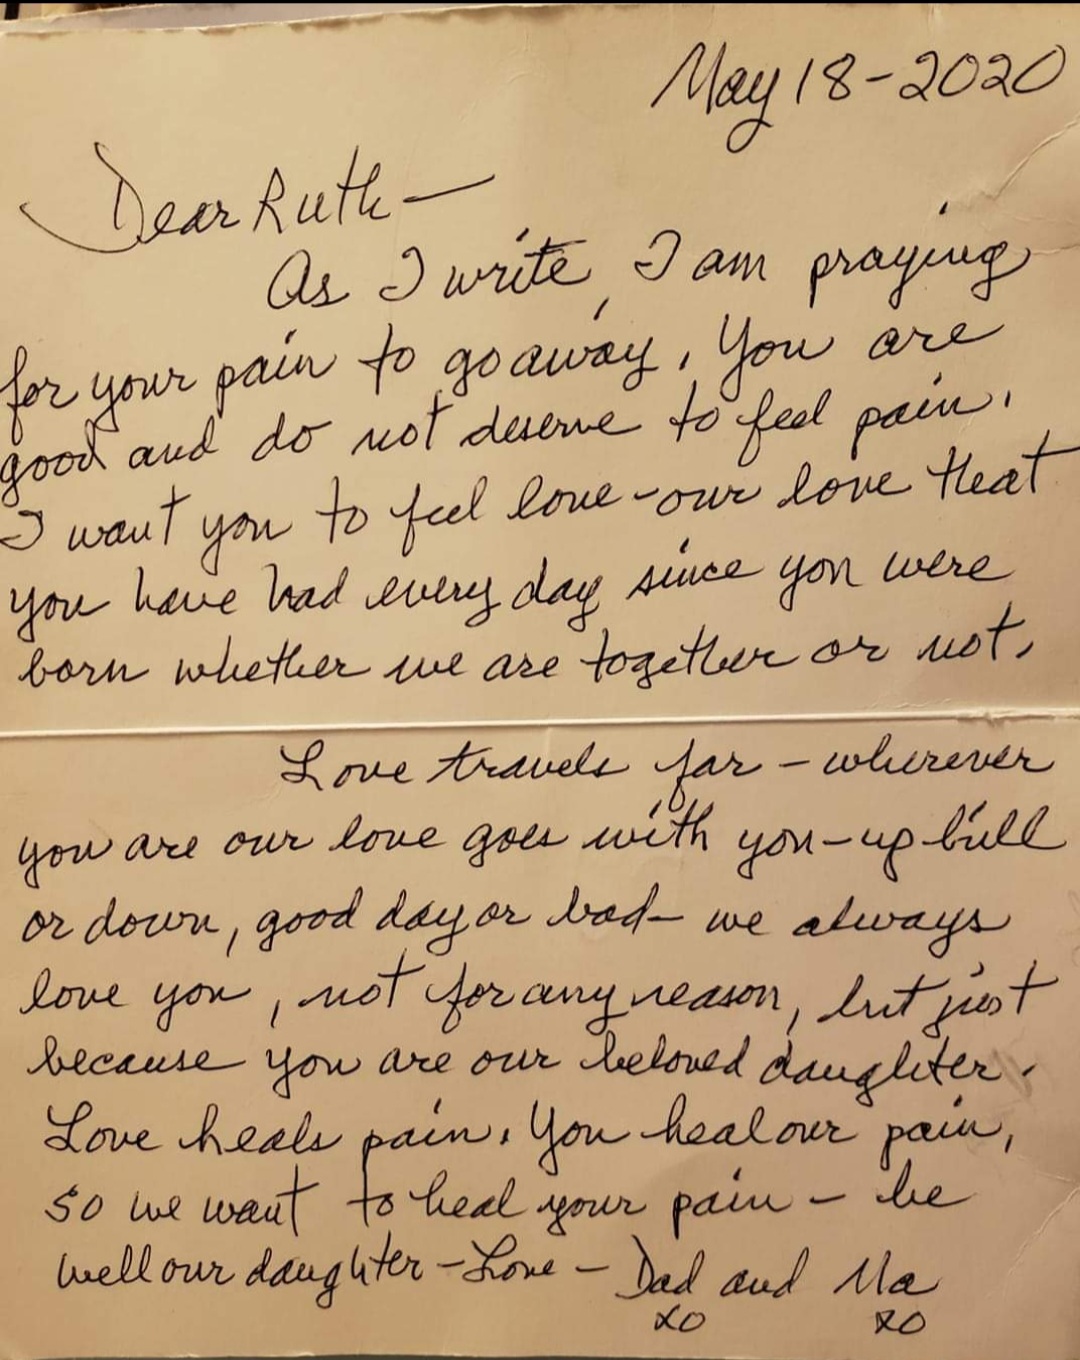 May 18-2020
Dear Ruth —
As I write, I am praying
for your pain to go away. You are
good and do not deserve to feel pain.
I want you to feel love - our love that
you have had every day since you were
born whether we are together or not.
Love travels far - wherever
you are our love goes with you - up hill
or down, good day or bad - we always
love you, not for any reason, but just
because you are our beloved daughter.
Love heals pain. You heal our pain,
so we want to heal your pain - be
well our daughter - Love - Dad and Ma
XO XO